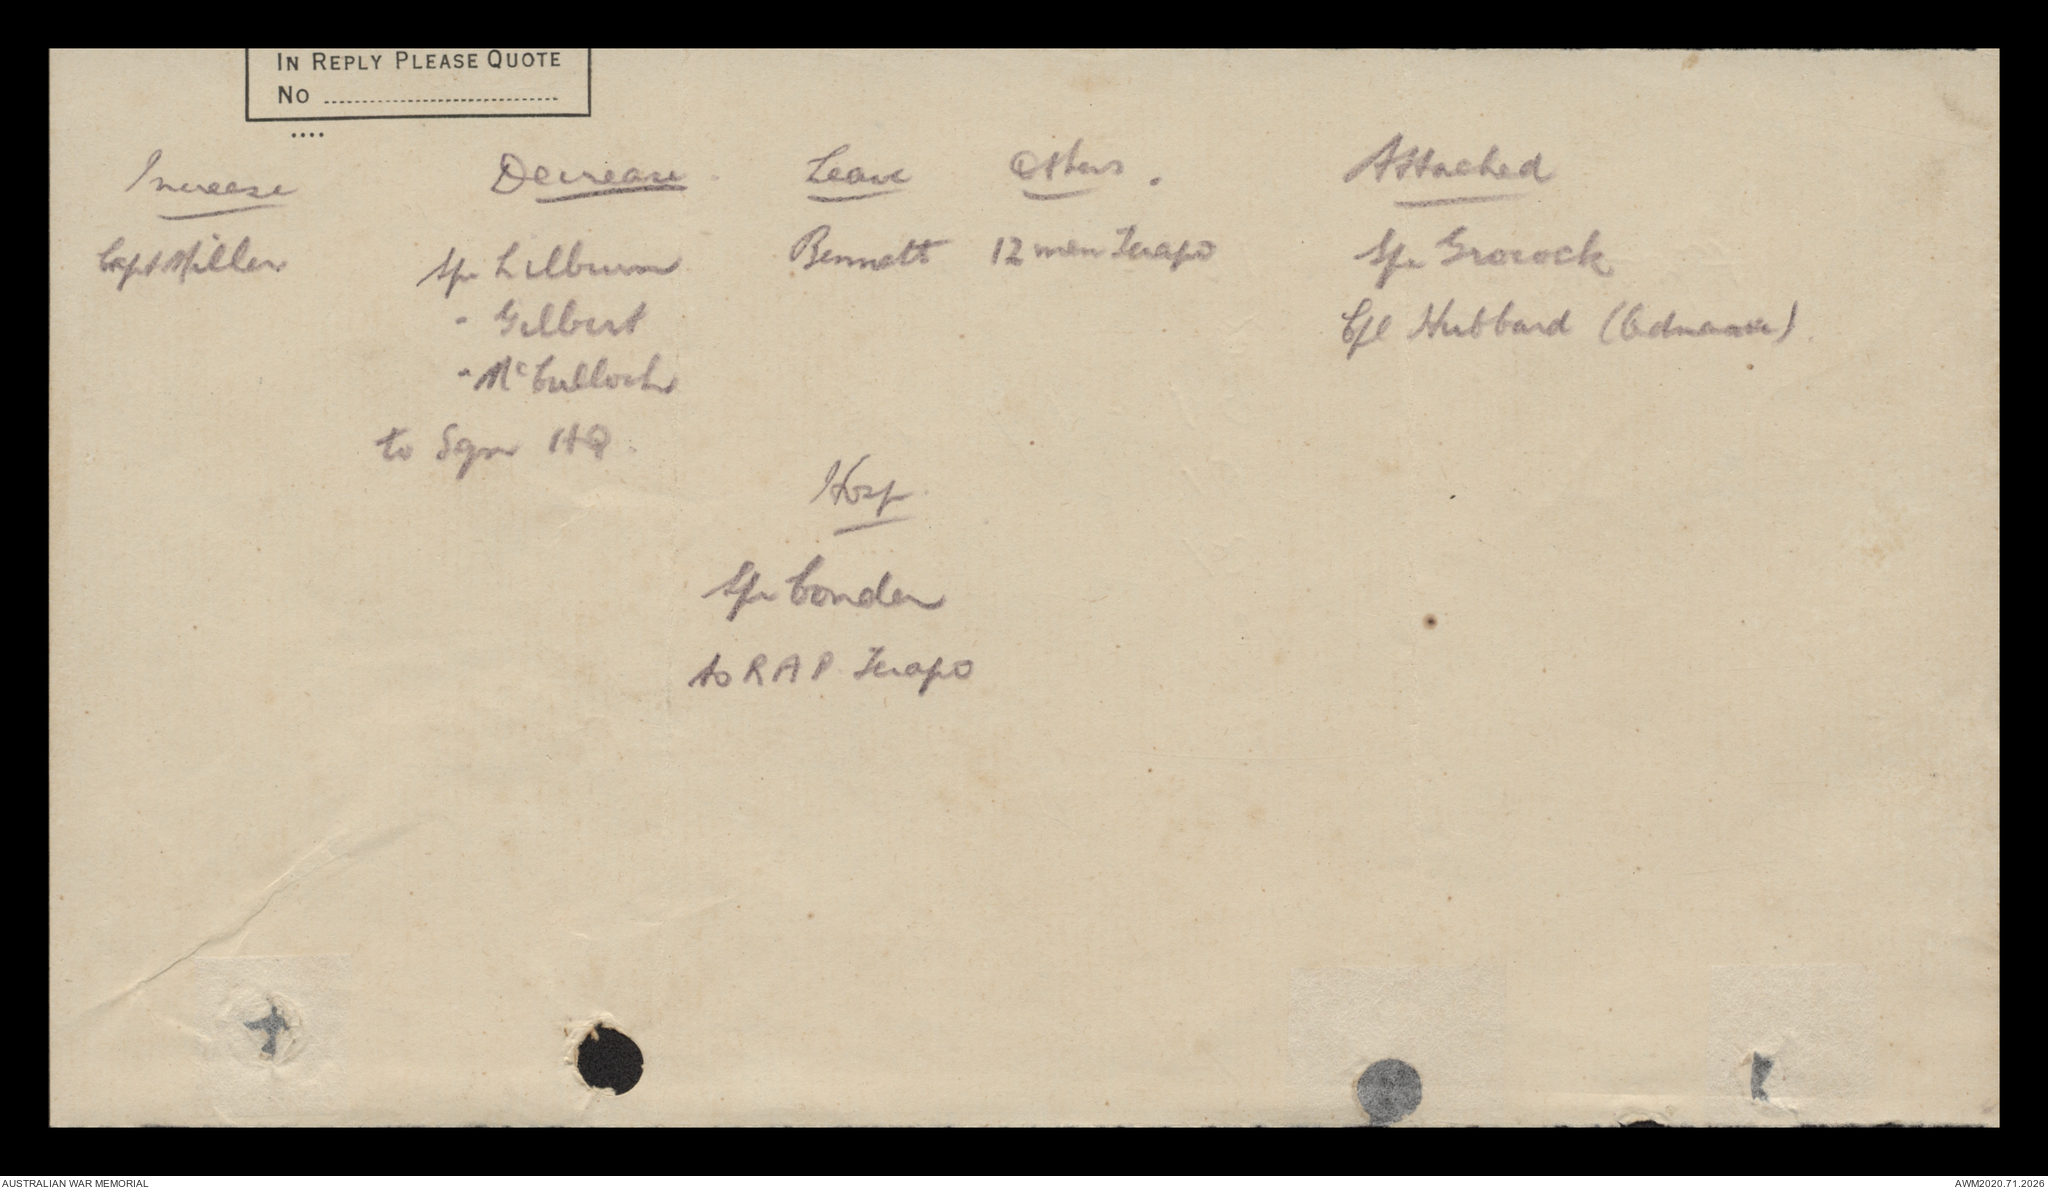 IN REPLY PLEASE QUOTE
No ....................................
....
Increase
Capt Miller
Decrease.
Spr Lilburn
" Gilbert
" McCulloch
to Sqn HQ.
Leave
Bennett
Others.
12 men Terapo
Hosp.
Spr Conder
to RAP Terapo
Attached
Spr Grocock
Cpl Hubbard (Ordnance).
AUSTRALIAN WAR MEMORIAL
AWM2020.71.2026